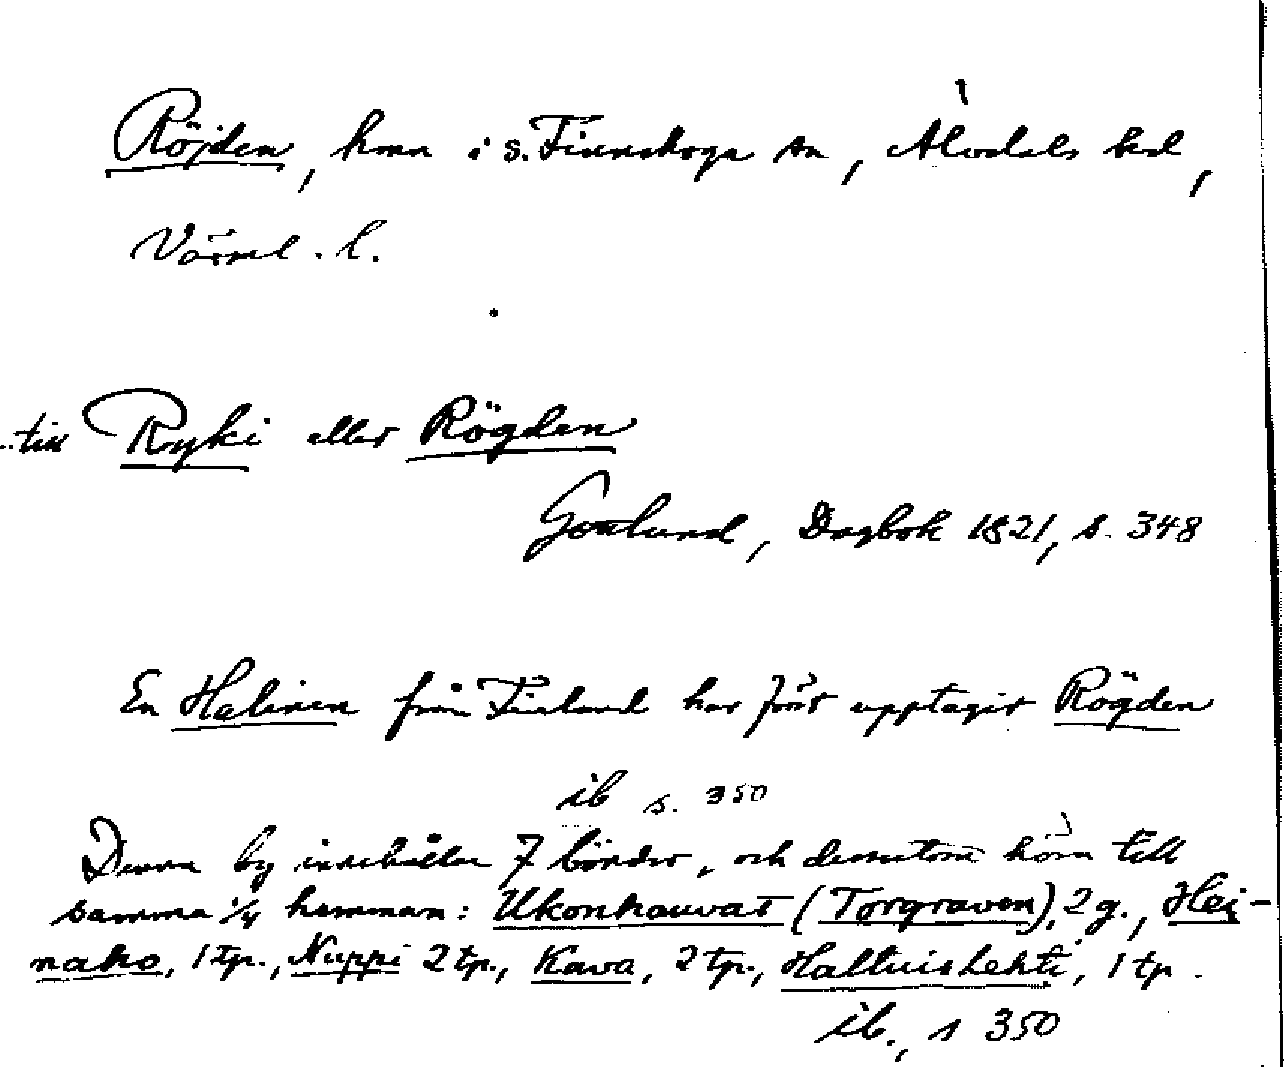 Röjden, hmn i s. Finnskoga sn, Älvdals hd,
Värml. l.
..till Ryki eller Rögden
Gottlund, Dagbok 1821, s. 348
En Halinen från Finland har först upptagit Rögden
ib s. 350
Denna by innehåller 7 bönder, och dessutom höra till
samma 1/4 hemman: Ukonhauvat (Torgraven), 2 g., Hei-
naho, 1 tp., Nuppi 2 tp., Kava, 2 tp., Halluislehti, 1 tp.
ib., s 350